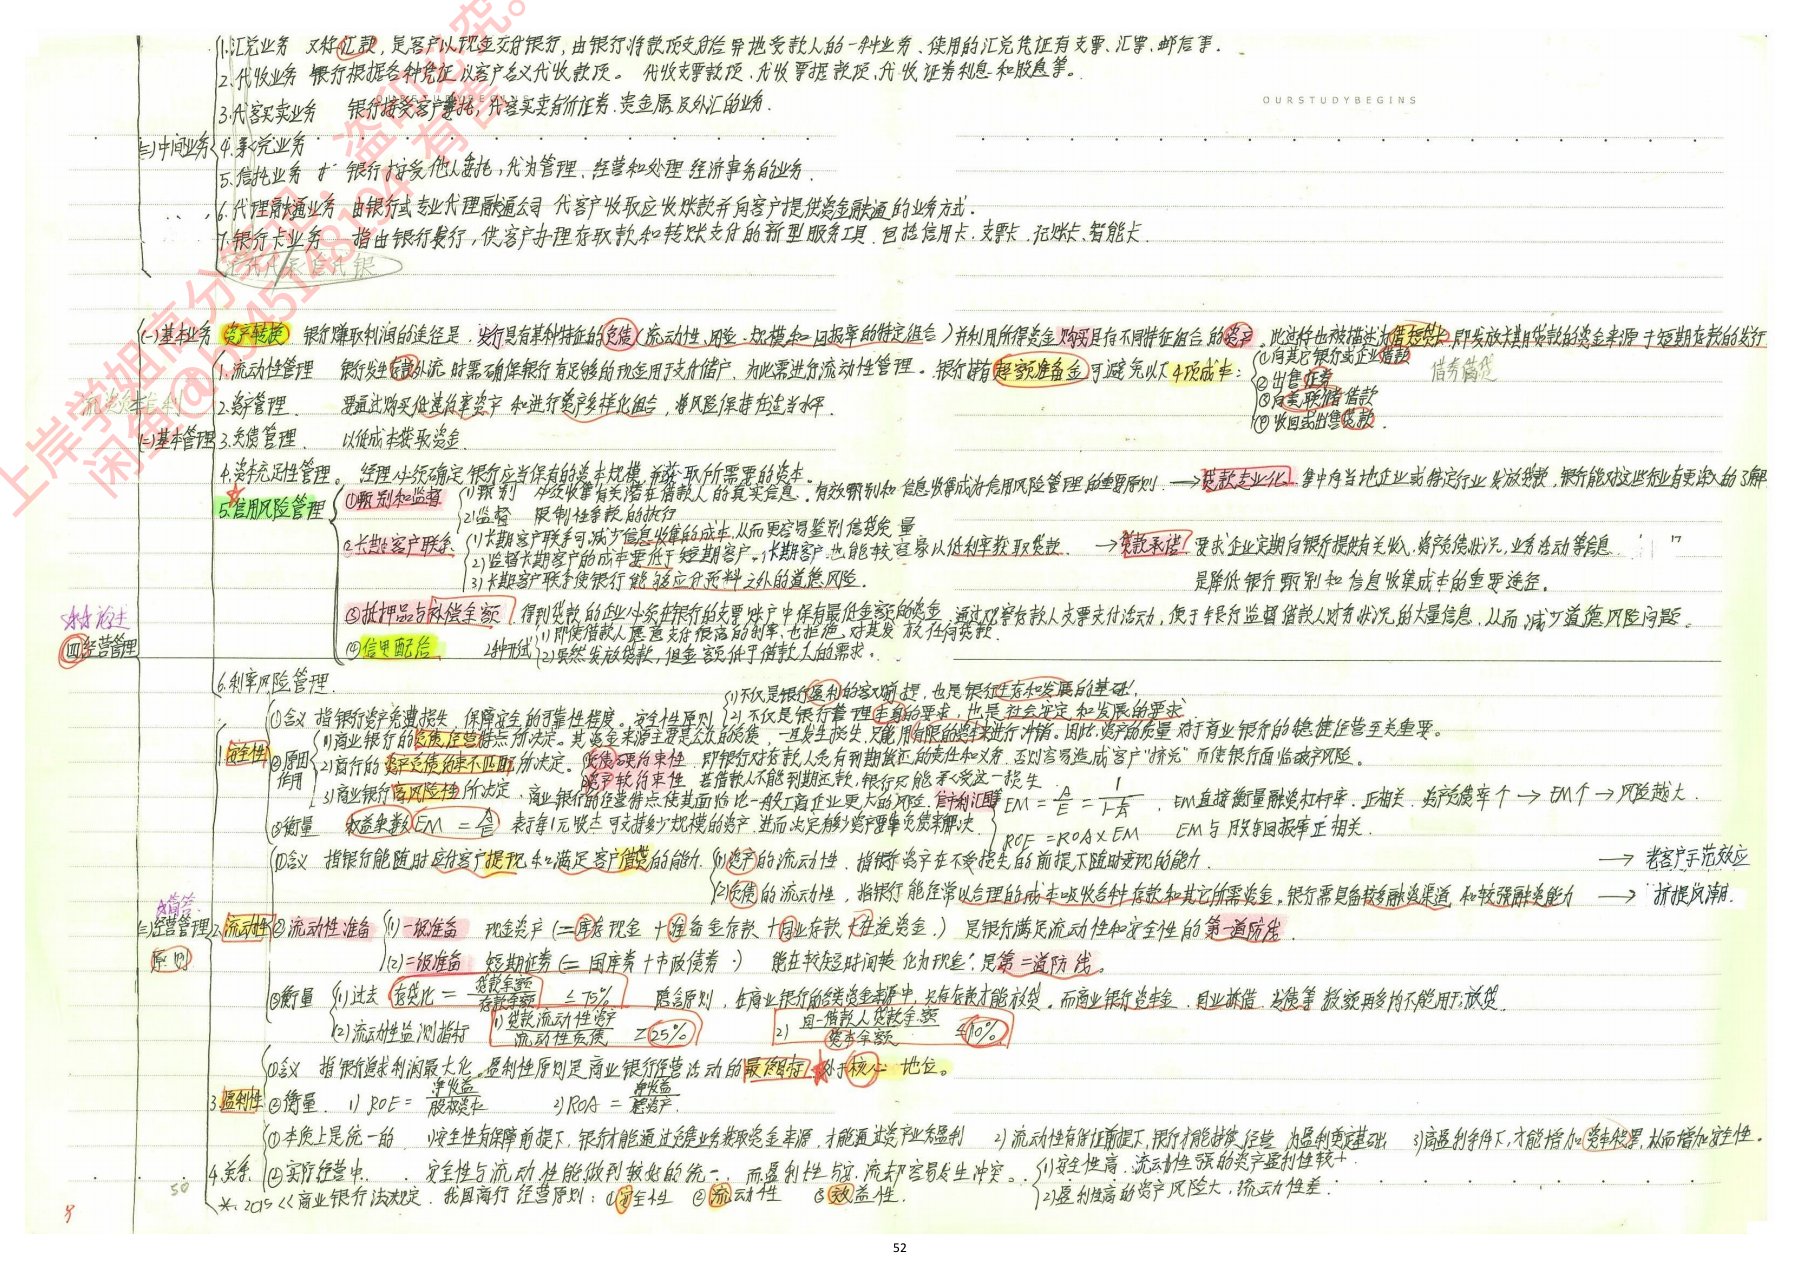 1.汇兑业务 又称汇款,是客户以现金交付银行,由银行将款项支付给异地受款人的一种业务.使用的汇兑凭证有支票、汇票、邮信等.
2.代收业务 银行根据各种凭证以客户名义代收款项。 代收支票款项、代收票据款项、代收证券利息和股息等。
OURSTUDYBEGINS
3.代客买卖业务 银行接受客户委托,代客买卖有价证券、贵金属及外汇的业务.
(三)中间业务 4.承兑业务
5.信托业务 银行接受他人委托,代为管理、经营和处理经济事务的业务.
6.代理融通业务 由银行或专业代理融通公司代客户收取应收账款并向客户提供资金融通的业务方式.
7.银行卡业务 指由银行发行,供客户办理存取款和转账支付的新型服务工具.包括信用卡.支票卡.记账卡.智能卡.
(一)基本业务 资产转换 银行赚取利润的途径是,发行具有某种特征的负债(流动性、风险、规模和回报率的特定组合)并利用所得资金购买具有不同特征组合的资产.此过程也被描述为借短贷长,即发放长期贷款的资金来源于短期存款的发行
1.流动性管理 银行发生存款外流时需确保银行有足够的现金用于支付储户,为此需进行流动性管理。银行持有超额准备金可避免以下4项成本:
①向其它银行或企业借款
②出售证券
③向美联储借款
④收回或出售贷款.
借券储贷
2.资产管理. 要通过购买低违约率资产和进行资产多样化组合,将风险保持在适当水平.
(二)基本管理 3.负债管理. 以低成本获取资金.
4.资本充足性管理。 经理必须确定银行应当保有的资本规模,并获取所需要的资本。
5.信用风险管理 ①甄别和监督 (1)甄别 必须收集有关潜在借款人的真实信息.有效甄别和信息收集成为信用风险管理的重要原则. → 贷款专业化. 集中向当地企业或特定行业发放贷款,银行能对这些行业有更深入的了解
(2)监督 限制性条款的执行
②长期客户联系 (1)长期客户联系可减少信息收集的成本,从而更容易鉴别信贷质量
(2)监督长期客户的成本要低于短期客户.长期客户也能较容易以低利率获取贷款.
(3)长期客户联系使银行能够应付预料之外的道德风险.
→ 贷款承诺 要求企业定期向银行提供有关收入,资产负债状况,业务活动等信息
是降低银行甄别和信息收集成本的重要途径。
③抵押品与补偿金额. 得到贷款的企业必须在银行的支票账户中保有最低金额的资金.通过观察存款人支票支付活动,便于银行监督借款人财务状况的大量信息.从而减少道德风险问题。
④信用配给 2种形式 (1)即使借款人愿意支付很高的利率,也拒绝对其发放任何贷款.
(2)虽然发放贷款,但金额低于借款人的需求。
四 经营管理
6.利率风险管理.
1.安全性 ①含义 指银行资产免遭损失,保障安全的可靠性程度。安全性原则 (1)不仅是银行盈利的客观前提,也是银行生存和发展的基础.
(2)不仅是银行管理本身的要求,也是社会安定和发展的要求
②原因作用 1)商业银行的负债经营特点所决定。其资金来源主要是公众的负债,一旦发生损失,只能用有限的资本来进行冲销。因此.资产的质量对于商业银行的稳健经营至关重要。
2)商行的资产负债约束不匹配所决定。 负债硬约束性 即银行对存款人负有到期偿还的责任和义务.否则容易造成客户"挤兑"而使银行面临破产风险。
资产软约束性 若借款人不能到期还款,银行只能承受这一损失
3)商业银行高风险性所决定. 商业银行的经营特点使其面临比一般工商企业更大的风险.
③衡量 权益乘数EM=A/E 表示每1元股本可支持多少规模的资产,进而决定有多少资产要靠负债来解决.
EM=A/E=1/(1-D/A). EM直接衡量融资杠杆率.正相关.资产负债率↑→EM↑→风险越大.
ROE=ROA×EM EM与股东回报率正相关.
①含义 指银行能随时应付客户提现和满足客户借贷的能力 (1)资产的流动性.指银行资产在不受损失的前提下随时变现的能力. → 老客户示范效应
(2)负债的流动性,指银行能经常以合理的成本吸收各种存款和其它所需资金.银行需具备较多融资渠道和较强融资能力 → 挤提风潮.
简答
(三)经营管理原则 2.流动性 ②流动性准备 (1)一级准备 现金资产(=库存现金+准备金存款+同业存款+在途资金.) 是银行满足流动性和安全性的第一道防线.
(2)二级准备 短期证券(=国库券+市政债券.) 能在较短时间转化为现金.是第二道防线。
③衡量 (1)过去 存贷比=贷款余额/存款余额 ≤75% 隐含原则.在商业银行的各类资金来源中,只有存款才能放贷。而商业银行资本金.同业拆借.发债等数额再多均不能用于放贷.
(2)流动性监测指标 1)贷款流动性资产/流动性负债 ≥25% 2)同一借款人贷款余额/资本余额 ≤10%
①含义 指银行追求利润最大化.盈利性原则是商业银行经营活动的最终目标.处于核心地位。
3.盈利性 ②衡量. 1)ROE=净收益/股权资本 2)ROA=净收益/总资产.
4.关系 ①本质上是统一的 1)安全性有保障前提下,银行才能通过负债业务获取资金来源,才能通过资产业务盈利 2)流动性有保证前提下,银行才能持续经营.为盈利奠定基础 3)高盈利条件下,才能增加资本积累,从而增加安全性。
②实际经营中. 安全性与流动性能做到较好的统一.而盈利性与安.流却容易发生冲突。 (1)安全性高.流动性强的资产盈利性较小.
(2)盈利性高的资产风险大,流动性差.
*.2015《商业银行法》规定.我国商行经营原则:①安全性 ②流动性 ③效益性.
50
52